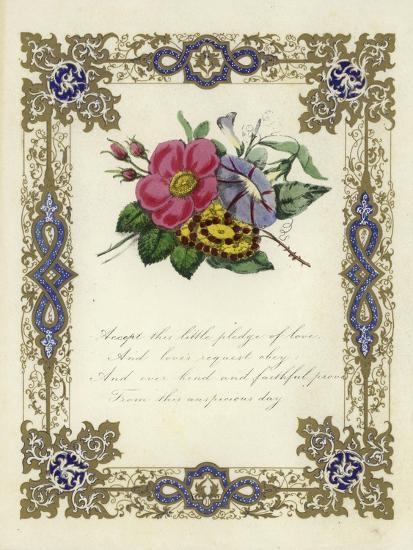 Accept this little pledge of love,
And love's request obey,
And ever kind and faithful prove
From this auspicious day